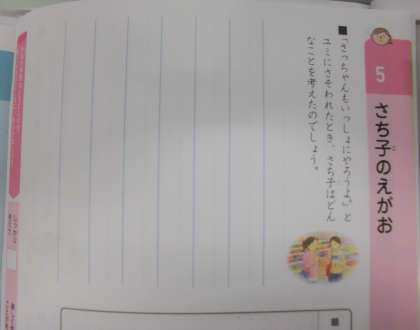 5
さち子のえがお
■「さっちゃんもいっしょにやろうよ。」と
ユミにさそわれたとき、さち子はどん
なことを考えたのでしょう。
■